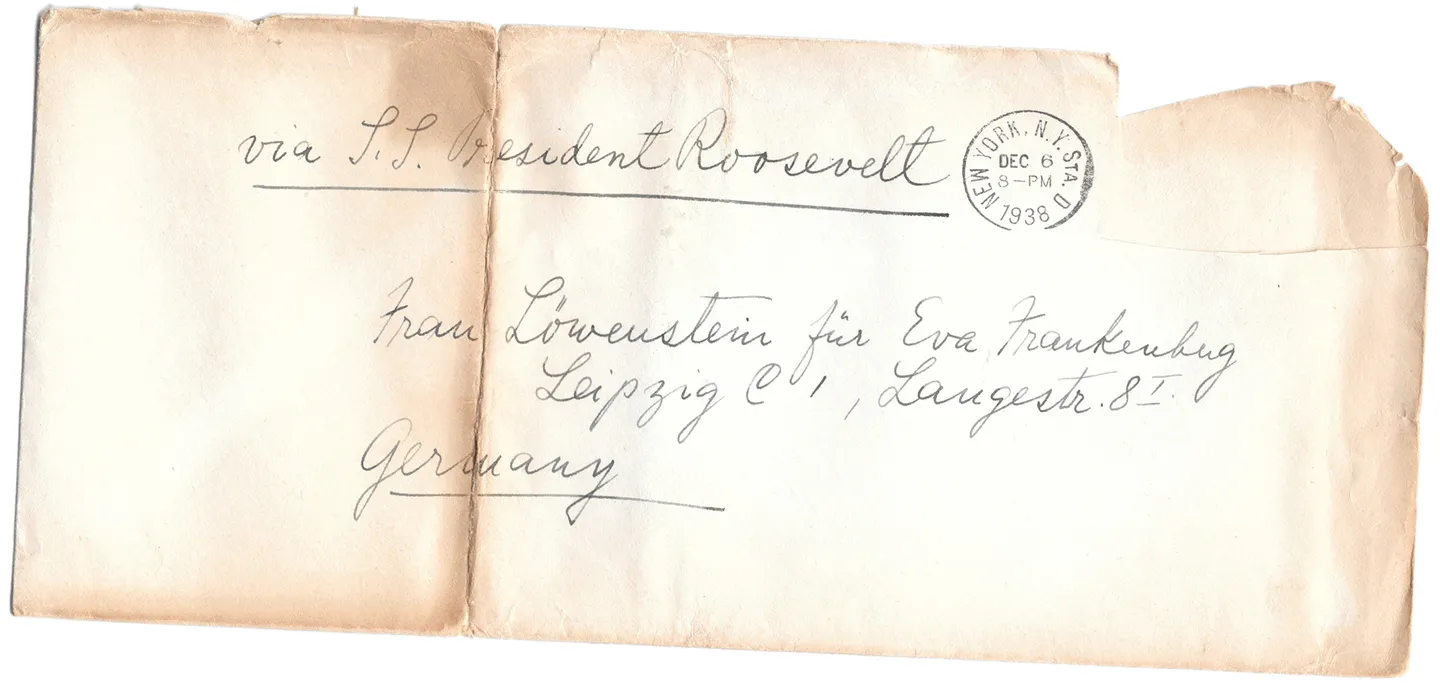 via S.S. President Roosevelt
NEW YORK, N.Y. STA. D
DEC 6
8-PM
1938
Frau Löwenstein für Eva Frankenbug
Leipzig C 1, Langestr. 8 I.
Germany